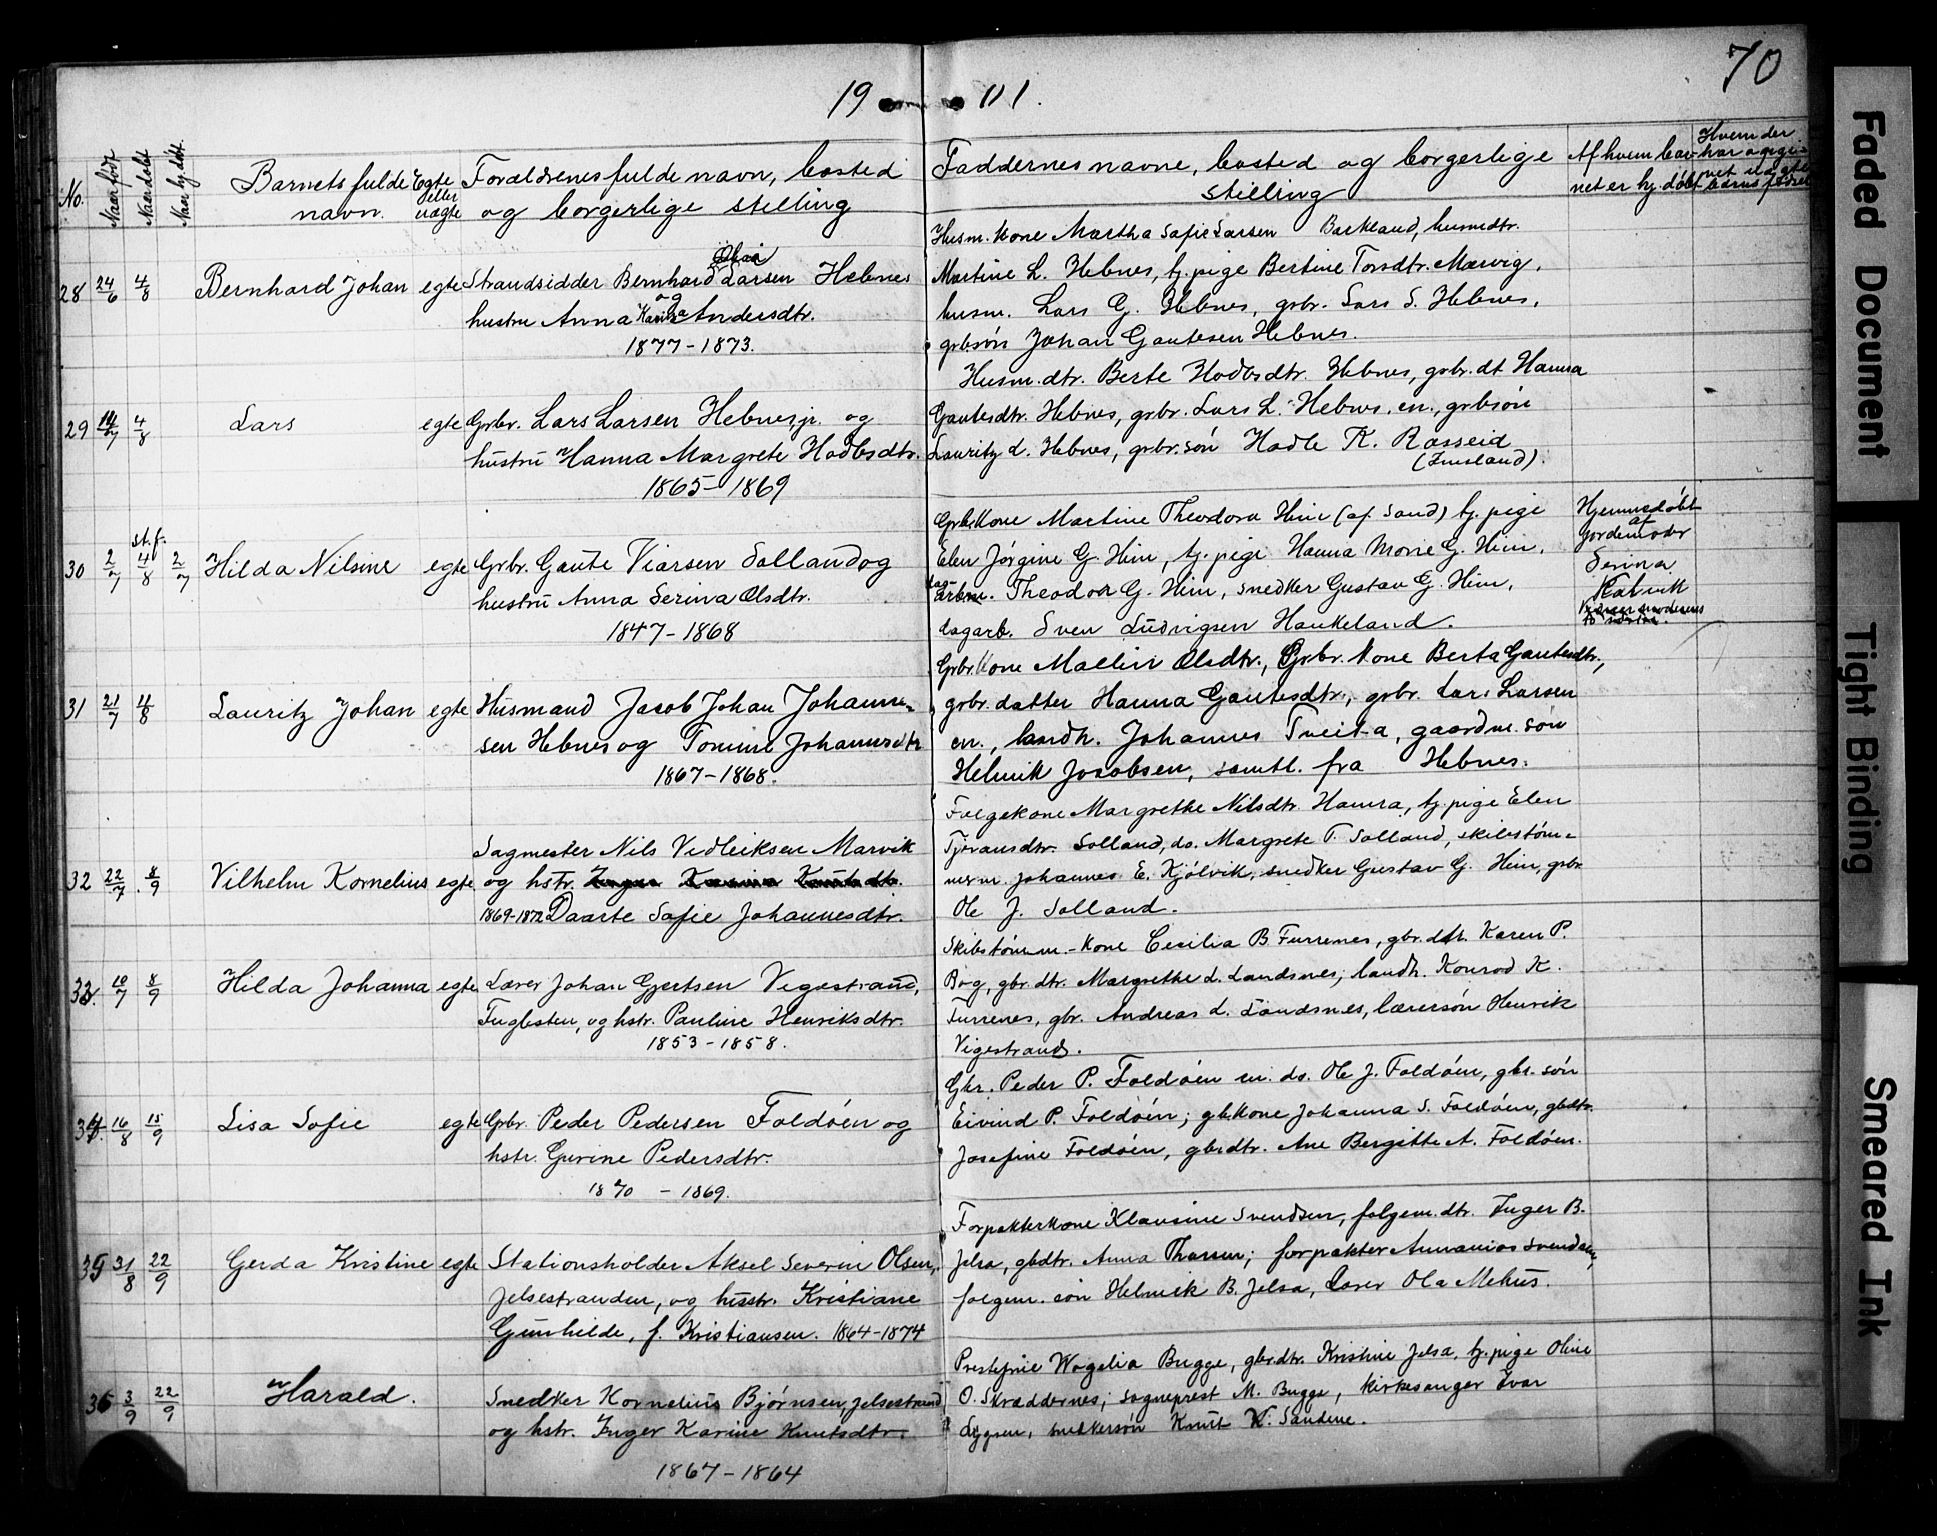 70
19 01.
No.
Naar født
Naar døbt
Naar hj. døbt
Barnets fulde navn.
Egte eller uægte
Forældrenes fulde navn, bosted og borgerlige stilling
Faddernes navne, bosted og borgerlige stilling
Af hvem barnet er hj. døbt
Hvem der har opgivet
28 24/6 4/8 Bernhard Johan egte Strandsidder Bernhard Larsen Hebnes
og
hustru Anna Karina Andersdtr.
1877-1873.
Husm. kone Martha Sofie Larsen Barkland, husmdtr.
Martine L. Hebnes, tj. pige Bertine Torsdtr. Marvig,
husm. Lars G. Hebnes, grbr. Lars S. Hebnes,
grbsøn Johan Gautesen Hebnes.
29 14/7 4/8 Lars egte Grbr. Lars Larsen Hebnes, jr. og
hustru Hanna Margrete Hodlesdtr.
1865-1869
Husm. dtr. Berte Hodlesdtr. Hebnes, grbr. dt Hanna
Gautesdtr. Hebnes, grbr. Lars L. Hebnes, en., grbsøn
Lauritz L. Hebnes, grbr. søn Hodle K. Røsseid
(Imsland).
st.f.
30 2/7 4/8 2/7 Hilda Nilsine egte Grbr. Gaute Viarsen Solland og
hustru Anna Serina Olsdtr.
1847-1868
Grbr. kone Martine Theodora Hiim (af Sand) tj. pige
Elen Jørgine G. Hiim, tj. pige Hanna Marie G. Hiim,
Theodor G. Hiim, snedker Gustav G. Hiim,
dagarb. Sven Ludvigsen Haukeland.
Hjemmedøbt
af
jordemoder
Serina
31 21/7 4/8 Lauritz Johan egte Husmand Jacob Johan Johanne-
sen Hebnes og Tomine Johannesdtr
1867-1868.
Grbr. kone Malin Olsdtr., Grbr. kone Berta Gautesdtr.,
grbr. datter Hanna Gautesdtr., grbr. Lars Larsen
en., landh. Johannes Tveita, gaardm. søn
Helmik Jacobsen, samtl. fra Hebnes.
32 22/7 8/9 Vilhelm Kornelius egte Sagmester Nils Vidleiksen Marvik
og hstr. Inger Karina Knutsdtr.
1869-1872 Daarte Sofie Johannesdtr.
Folgekone Margrethe Nilsdtr. Hamra, tj. pige Elen
Tjeransdtr. Solland, do. Margrete T. Solland, skibstøm-
merm. Johannes E. Kjølvik, snedker Gustav G. Hiim, grbr
Ole J. Solland.
33. 10/7 8/9 Hilda Johanna egte Lærer Johan Gjertsen Vigestrand,
Fuglesten, og hstr. Pauline Henriksdtr.
1853-1858.
Skibstømm.-kone Cecilia B. Furrenes, gbr. dtr. Karen P.
Bog, gbr. dtr. Margrethe L. Landsnes; landh. Konrad K.
Furrenes, gbr. Andreas L. Landsnes, lærersøn Henrik
Vigestrand.
34. 16/8 15/9 Lisa Sofie egte Grbr. Peder Pedersen Foldøen og
hstr. Gurine Pedersdtr.
1870 - 1869.
Gbr. Peder P. Foldøen m. do. Ole J. Foldøen, gbr. søn
Eivind P. Foldøen; gbkone Johanna S. Foldøen, gbdtr.
Josefine Foldøen, gbrdtr. Ane Bergitte A. Foldøen.
35 31/8 22/9 Gerda Kristine egte Stationsholder Aksel Severin Olsen,
Jelsestranden, og hustr. Kristiane
Gunhilde, f. Kristiansen. 1864-1874
Forpakterkone Klausine Svendsen, folgem. dtr. Inger B.
Jelsa, gbdtr. Anna Thorsen; forpakter Annanias Svendsen,
folgem. søn Helmik B. Jelsa, Lærer Ola Mehus.
36 3/9 22/9 Harald. Snedker Kornelius Bjørnsen, Jelsestrand
og hstr. Inger Karine Knutsdtr.
1867-1864
Prestefrue Bugge, gbrdtr. Kristine Jelsa, tj. pige Oline
O. Skræddernes; sogneprest M. Bugge, kirkesanger Ivar
Lygsen, snekkersøn Knut K. Sandene.
Faded Document
Tight Binding
Smeared Ink